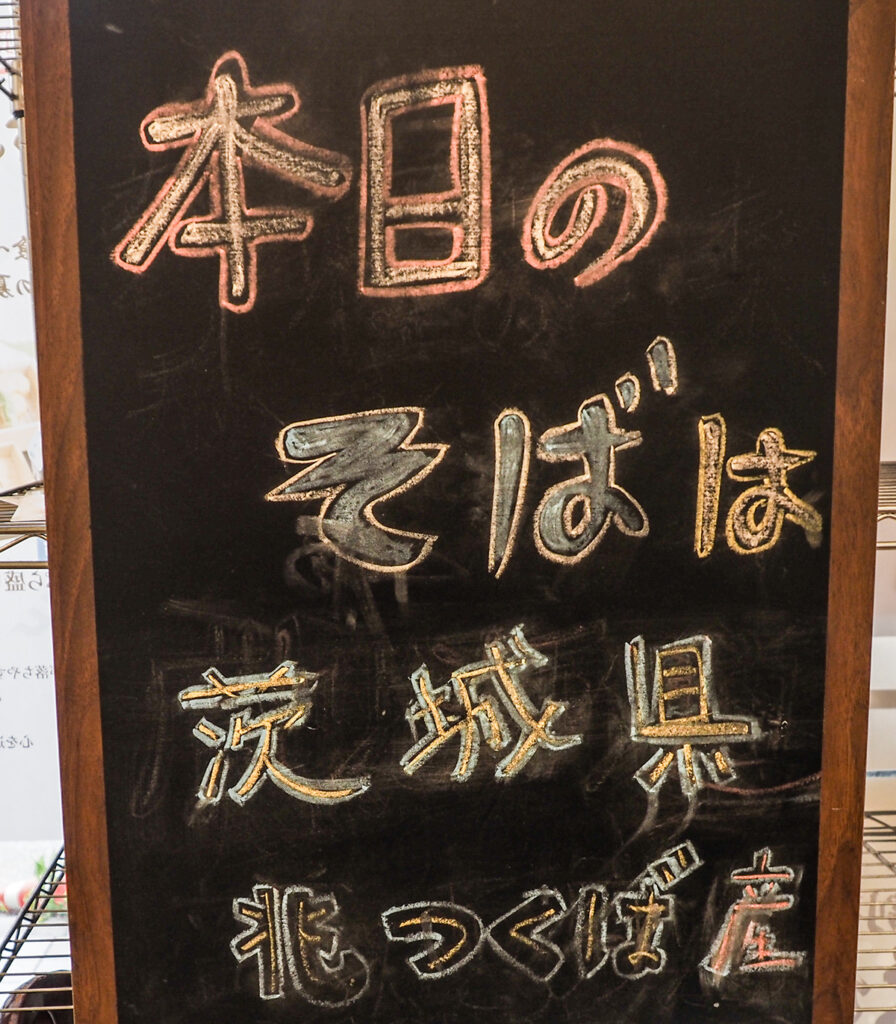 本日の
そばは
茨城県
北つくば産